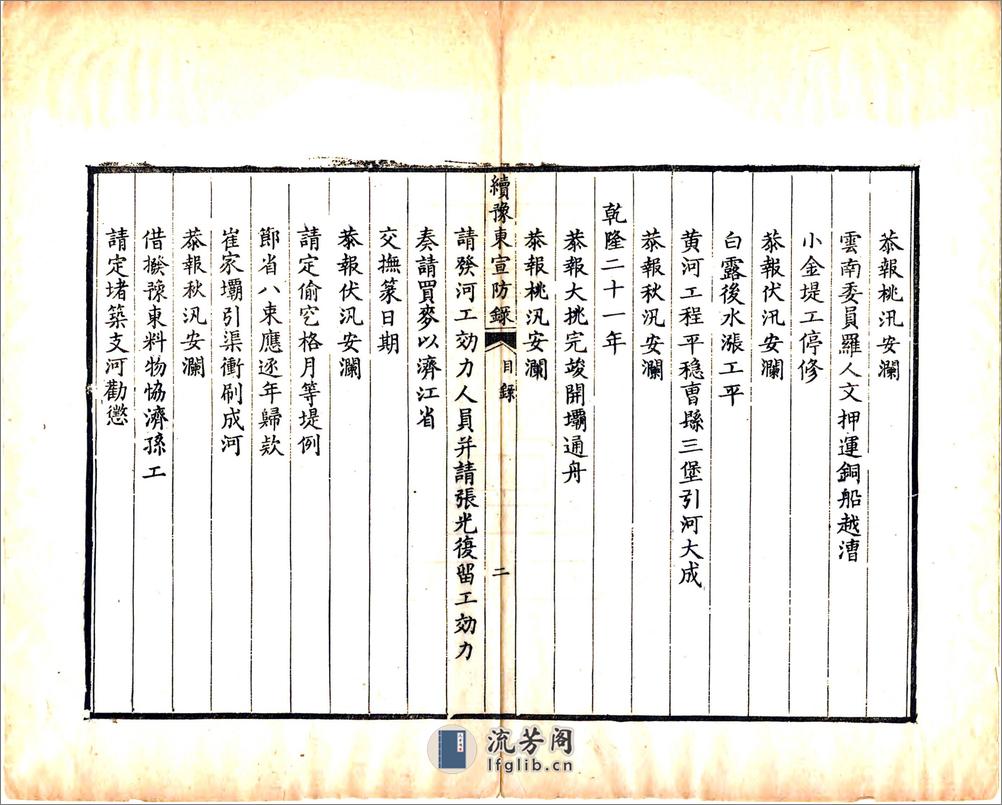 恭報桃汛安瀾
雲南委員羅人文押運銅船越漕
小金堤工停修
恭報伏汛安瀾
白露後水漲工平
黄河工程平穩曹縣三堡引河大成
恭報秋汛安瀾
乾隆二十一年
恭報大挑完竣開壩通舟
恭報桃汛安瀾
續豫東宣防錄
目錄
二
請發河工効力人員并請張光復留工効力
奏請買麥以濟江省
交撫篆日期
恭報伏汛安瀾
請定偷空格月等堤例
節省八束應逐年歸款
崔家壩引渠衝刷成河
恭報秋汛安瀾
借撥豫東料物協濟孫工
請定堵築支河勸懲
流芳阁
lfglib.cn